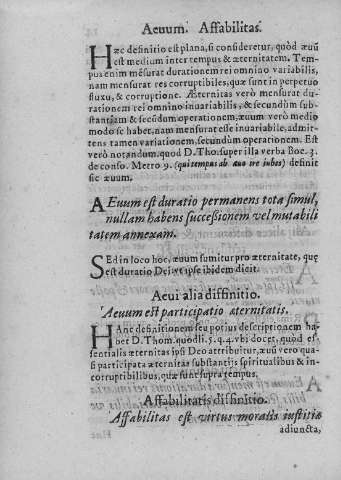 Aeuum. Affabilitas.
Hæc definitio est plana, si consideretur, quòd æuũ
est medium inter tempus & æternitatem. Tem
pus enim mẽsurat durationem rei omnino variabilis,
nam mensurat res corruptibiles, quæ sunt in perpetuo
fluxu, & corruptione. Æternitas verò mensurat du-
rationem rei omnino inuariabilis, & secundùm sub-
stantiam & secũdum operationem, æuum verò medio
modo se habet, nam mensurat esse inuariabile, admit-
tens tamen variationem, secundùm operationem. Est
verò notandum, quod D. Tho. super illa verba Boe. 3.
de conso. Metro 9. (qui tempus ab æuo ire iubes) definit
sic æuum.
AEuum est duratio permanens tota simul,
nullam habens successionem vel mutabili
tatem annexam.
Sed in loco hoc, æuum sumitur pro æternitate, quę
est duratio Dei, vt ipse ibidem dicit.
Aeui alia diffinitio.
Aeuum est participatio æternitatis.
HAnc definitionem seu potius descriptionem ha
bet D. Thom. quodli. 5. q. 4. vbi docet, quòd es
sentialis æternitas ipsi Deo attribuitur, æuũ vero qua-
si participata æternitas substantijs spiritualibus & in-
corruptibilibus, quæ sunt supra tempus.
Affabilitatis diffinitio.
Affabilitas est virtus moralis iustitiæ
adiuncta,